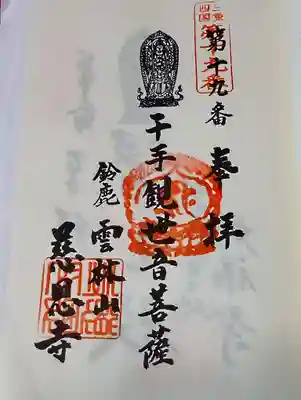 奉拝
第十九番
千手観世音菩薩
鈴鹿
雲林山
慈恩寺